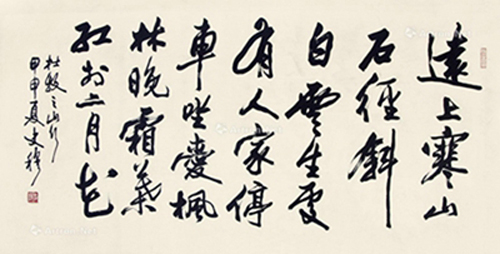 遠上寒山
石徑斜
白雲生處
有人家停
車坐愛楓
林晚霜葉
紅於二月花
杜牧之山行
甲申夏文穆